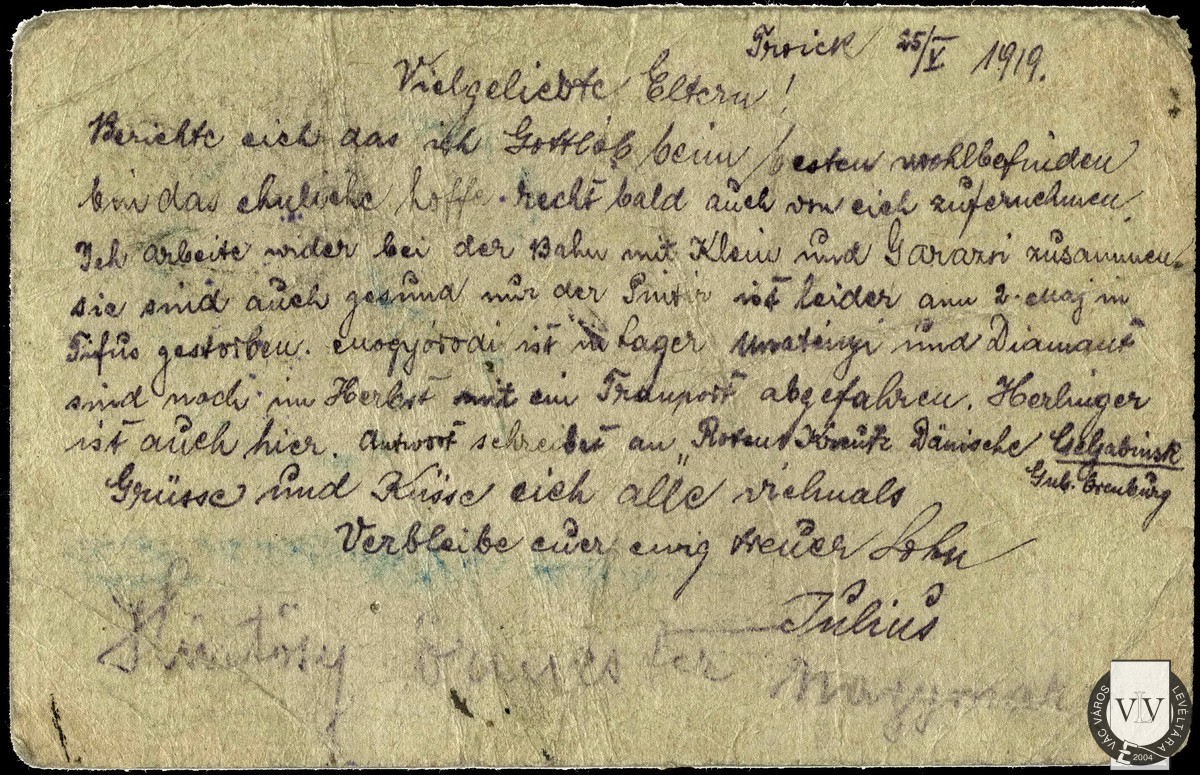 Troick 25/V 1919.
Vielgeliebte Eltern!
Berichte eich das ich Gottlob beim besten wohlbefinden
bin das ehnliche hoffe recht bald auch von eich zufernehmen.
Ich arbeite wider bei der Bahn mit Klein und Garazsi zusammen.
sie sind auch gesund nur der Pintir ist leider am 2. Maj in
Tifus gestorben. Mogyórodi ist in Lager und Diamant
sind noch im Herbst mit ein Tranport abgefahren. Herlinger
ist auch hier. Antwort schreibet an „Roten Kreutz Dänische Cseljabinsk
Gub. Orenburg
Grüsse und Küsse eich alle vielmals
Verbleibe euer ewig treuer Sohn
Julius
VÁC VÁROS LEVÉLTÁRA
VLV
2004